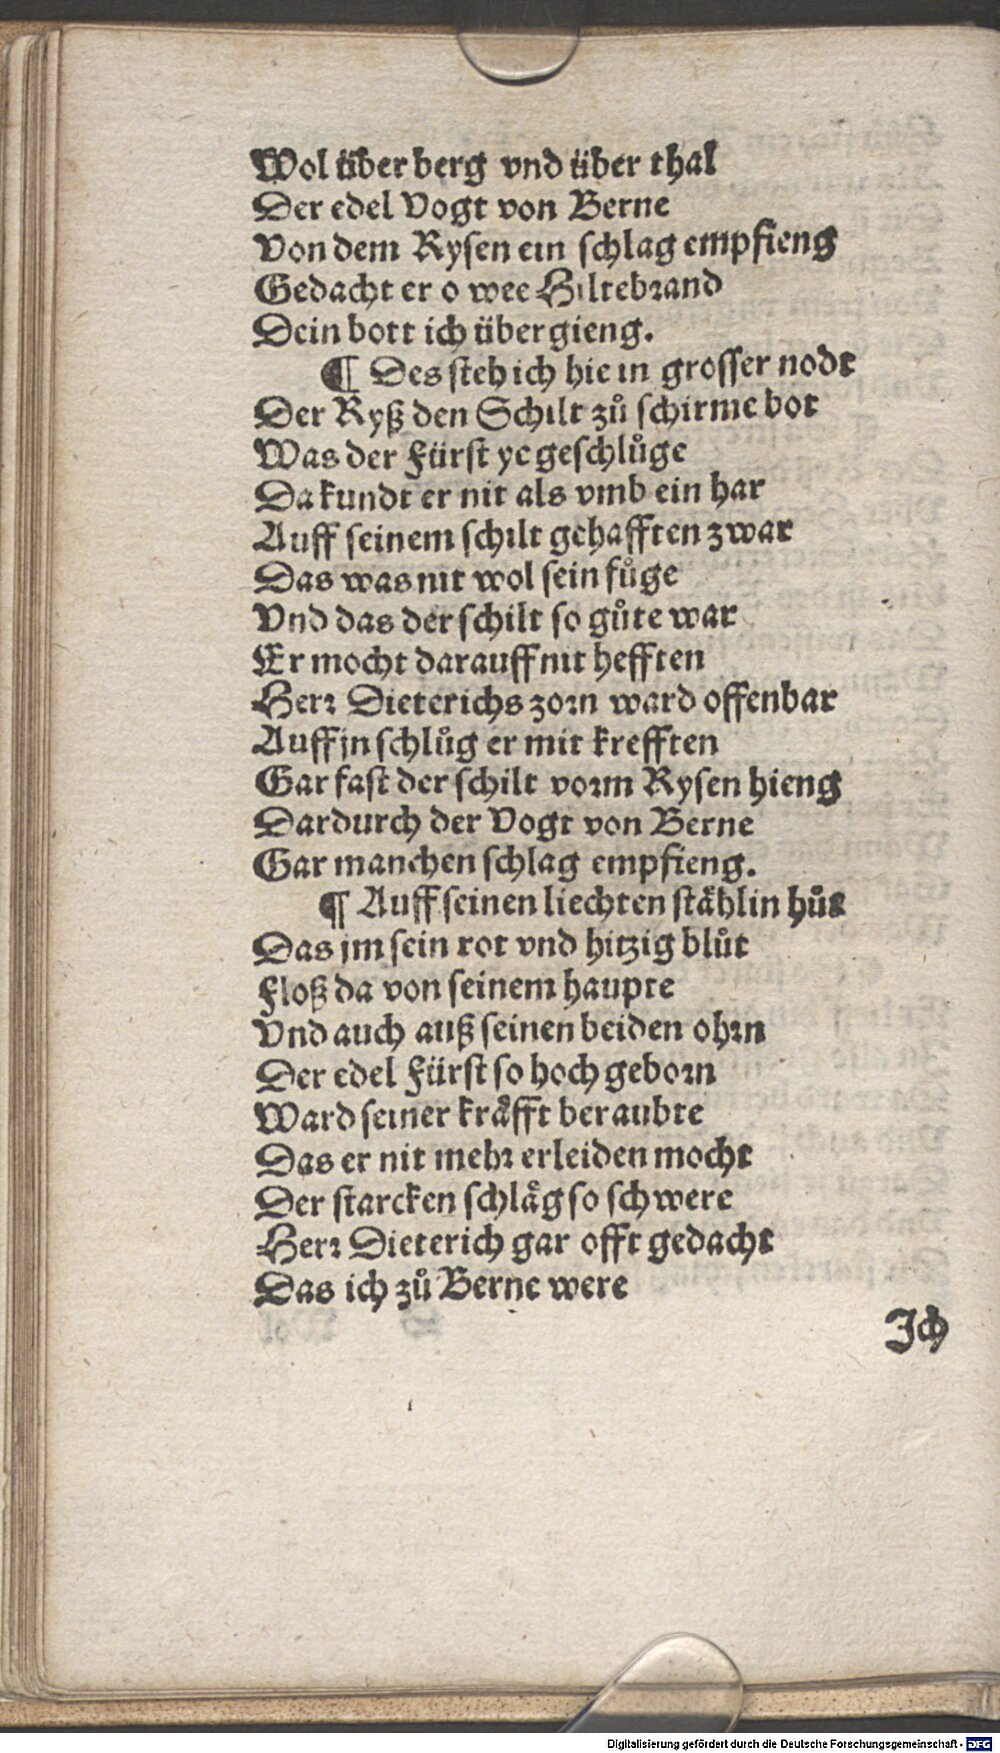 Wol über berg vnd über thal
Der edel Vogt von Berne
Von dem Rysen ein schlag empfieng
Gedacht er o wee Hiltebrand
Dein bott ich übergieng.
¶ Des steh ich hie in grosser nodt
Der Ryß den Schilt zů schirme bot
Was der Fürst ye geschlůge
Da kundt er nit als vmb ein har
Auff seinem schilt gehafften zwar
Das was nit wol sein fůge
Vnd das der schilt so gůte war
Er mocht darauff nit hefften
Herr Dieterichs zorn ward offenbar
Auff jn schlůg er mit krefften
Gar fast der schilt vorm Rysen hieng
Dardurch der Vogt von Berne
Gar manchen schlag empfieng.
¶ Auff seinen liechten ståhlin hůt
Das jm sein rot vnd hitzig blůt
Floß da von seinem haupte
Vnd auch auß seinen beiden ohrn
Der edel Fürst so hoch geborn
Ward seiner kråfft beraubte
Das er nit mehr erleiden mocht
Der starcken schlåg so schwere
Herr Dieterich gar offt gedacht
Das ich zů Berne were
Ich
Digitalisierung gefördert durch die Deutsche Forschungsgemeinschaft - DFG